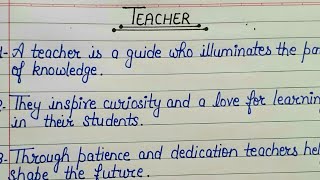 TEACHER
A teacher is a guide who illuminates the
of knowledge.
They inspire curiosity and a love for
in their students.
Through patience and dedication teachers
shape the future.